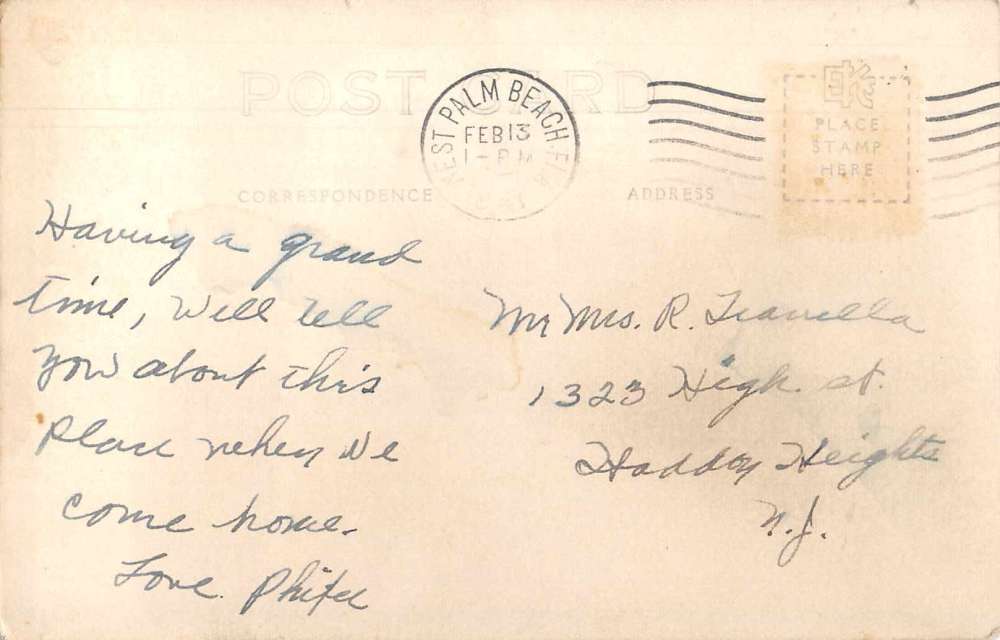 POST CARD
WEST PALM BEACH, FLA
FEB 13
1 - PM
EKC
PLACE
STAMP
HERE
CORRESPONDENCE
ADDRESS
Having a grand
time, Will tell
you about this
place when we
come home.
Love.
Mr Mrs. R.
1323 High. st.
Haddon Heights
N.J.